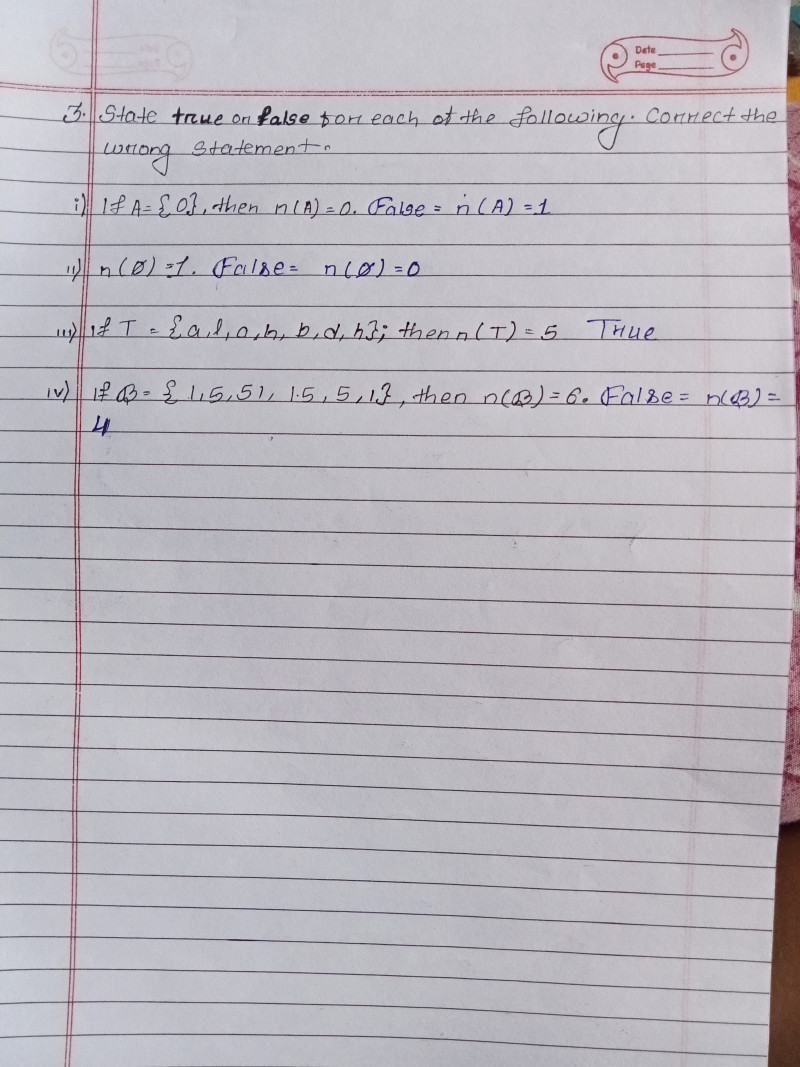 Date
Page
3. State true or false for each of the following. Correct the
wrong statement.
i) If A = {0}, then n(A) = 0. False = n(A) = 1
ii) n(Ø) = 1. False = n(Ø) = 0
iii) If T = {a, l, a, h, b, d, h}; then n(T) = 5 True
iv) If B = {1, 5, 51, 1.5, 5, 1}, then n(B) = 6. False = n(B) =
4